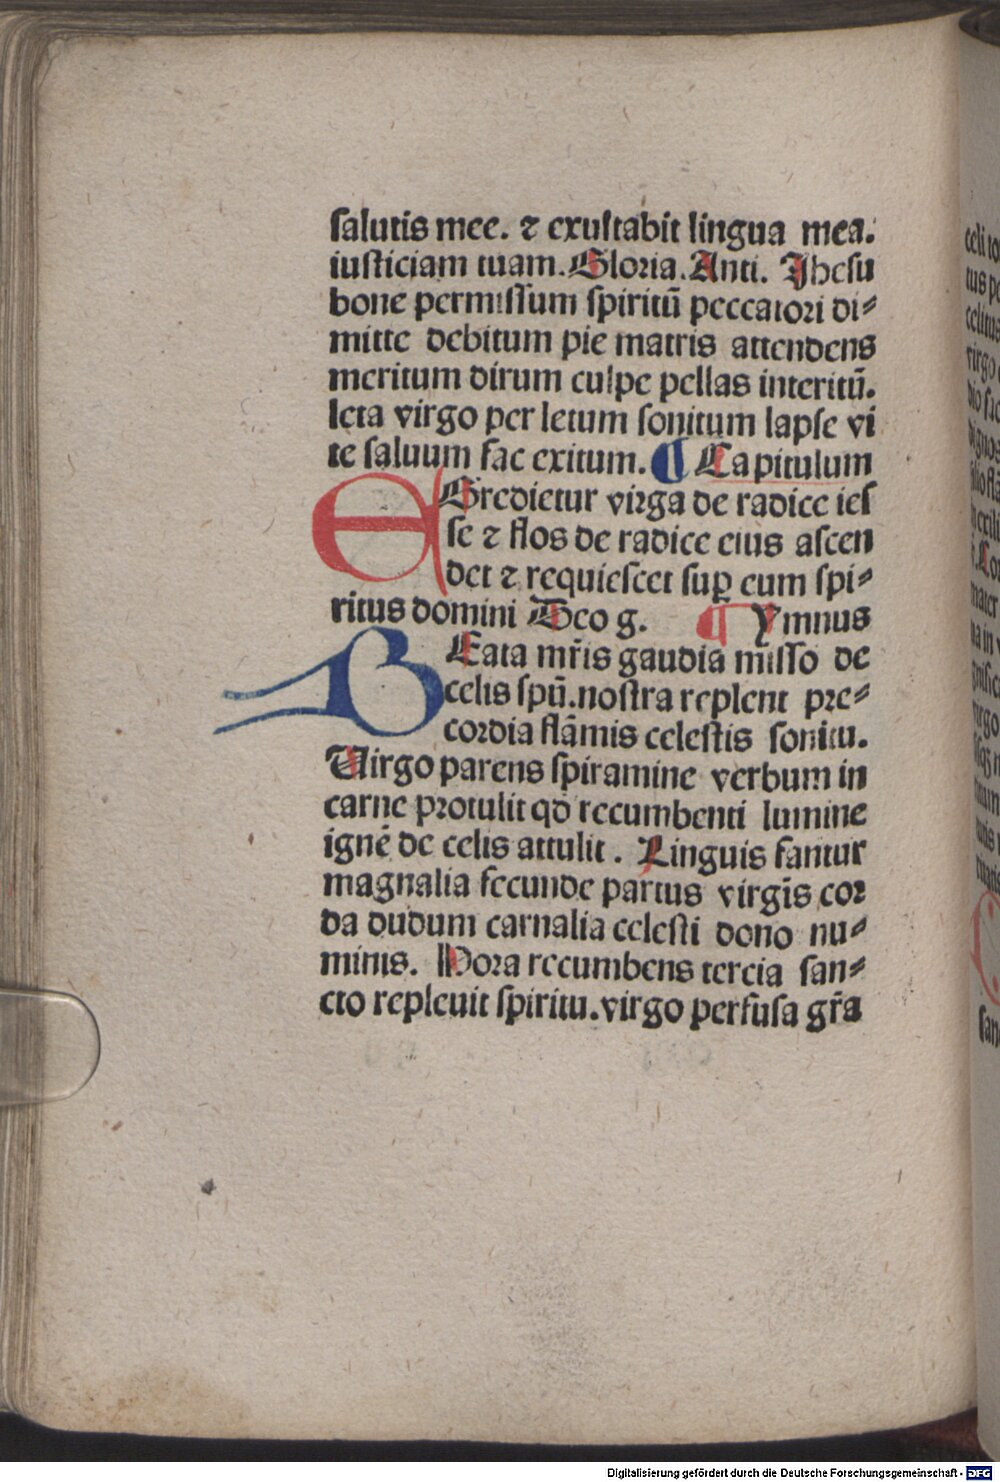 salutis mee. ⁊ exultabit lingua mea.
iusticiam tuam. Gloria. Anti. Jhesu
bone permissum spiritū peccatori di⸗
mitte debitum pie matris attendens
meritum dirum culpe pellas interitū.
leta virgo per letum sonitum lapse vi
te saluum fac exitum. ¶ Capitulum
EGredietur virga de radice ies
se ⁊ flos de radice eius ascen
det ⁊ requiescet sup̲ eum spi⸗
ritus domini Deo g. ¶ Ymnus
BEata mr̄is gaudia misso de
celis spū. nostra replent pre⸗
cordia flāmis celestis sonitu.
Virgo parens spiramine verbum in
carne protulit qd recumbenti lumine
ignē de celis attulit. Linguis fantur
magnalia fecunde partus virgīs cor
da dudum carnalia celesti dono nu⸗
minis. Hora recumbens tercia san⸗
cto repleuit spiritu. virgo perfusa gr̄a
celi to
tus pe
celitus
virgo
dio sac
dignos
filio
san
Digitalisierung gefördert durch die Deutsche Forschungsgemeinschaft - DFG